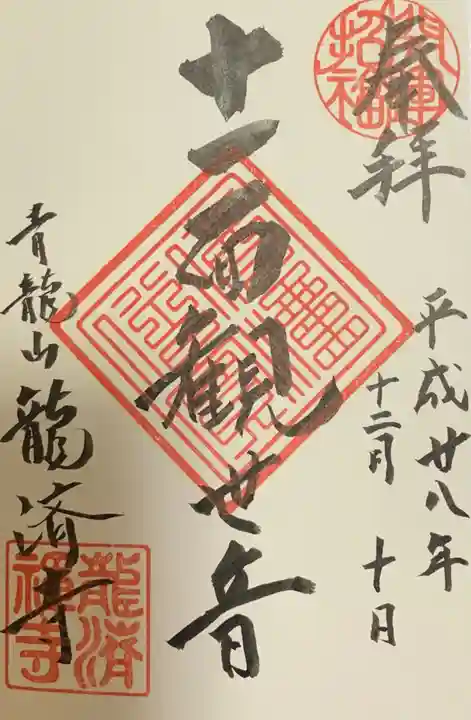 奉拝
平成廿八年
十二月 十日
十一面観世音
青龍山龍済寺
龍済禅寺